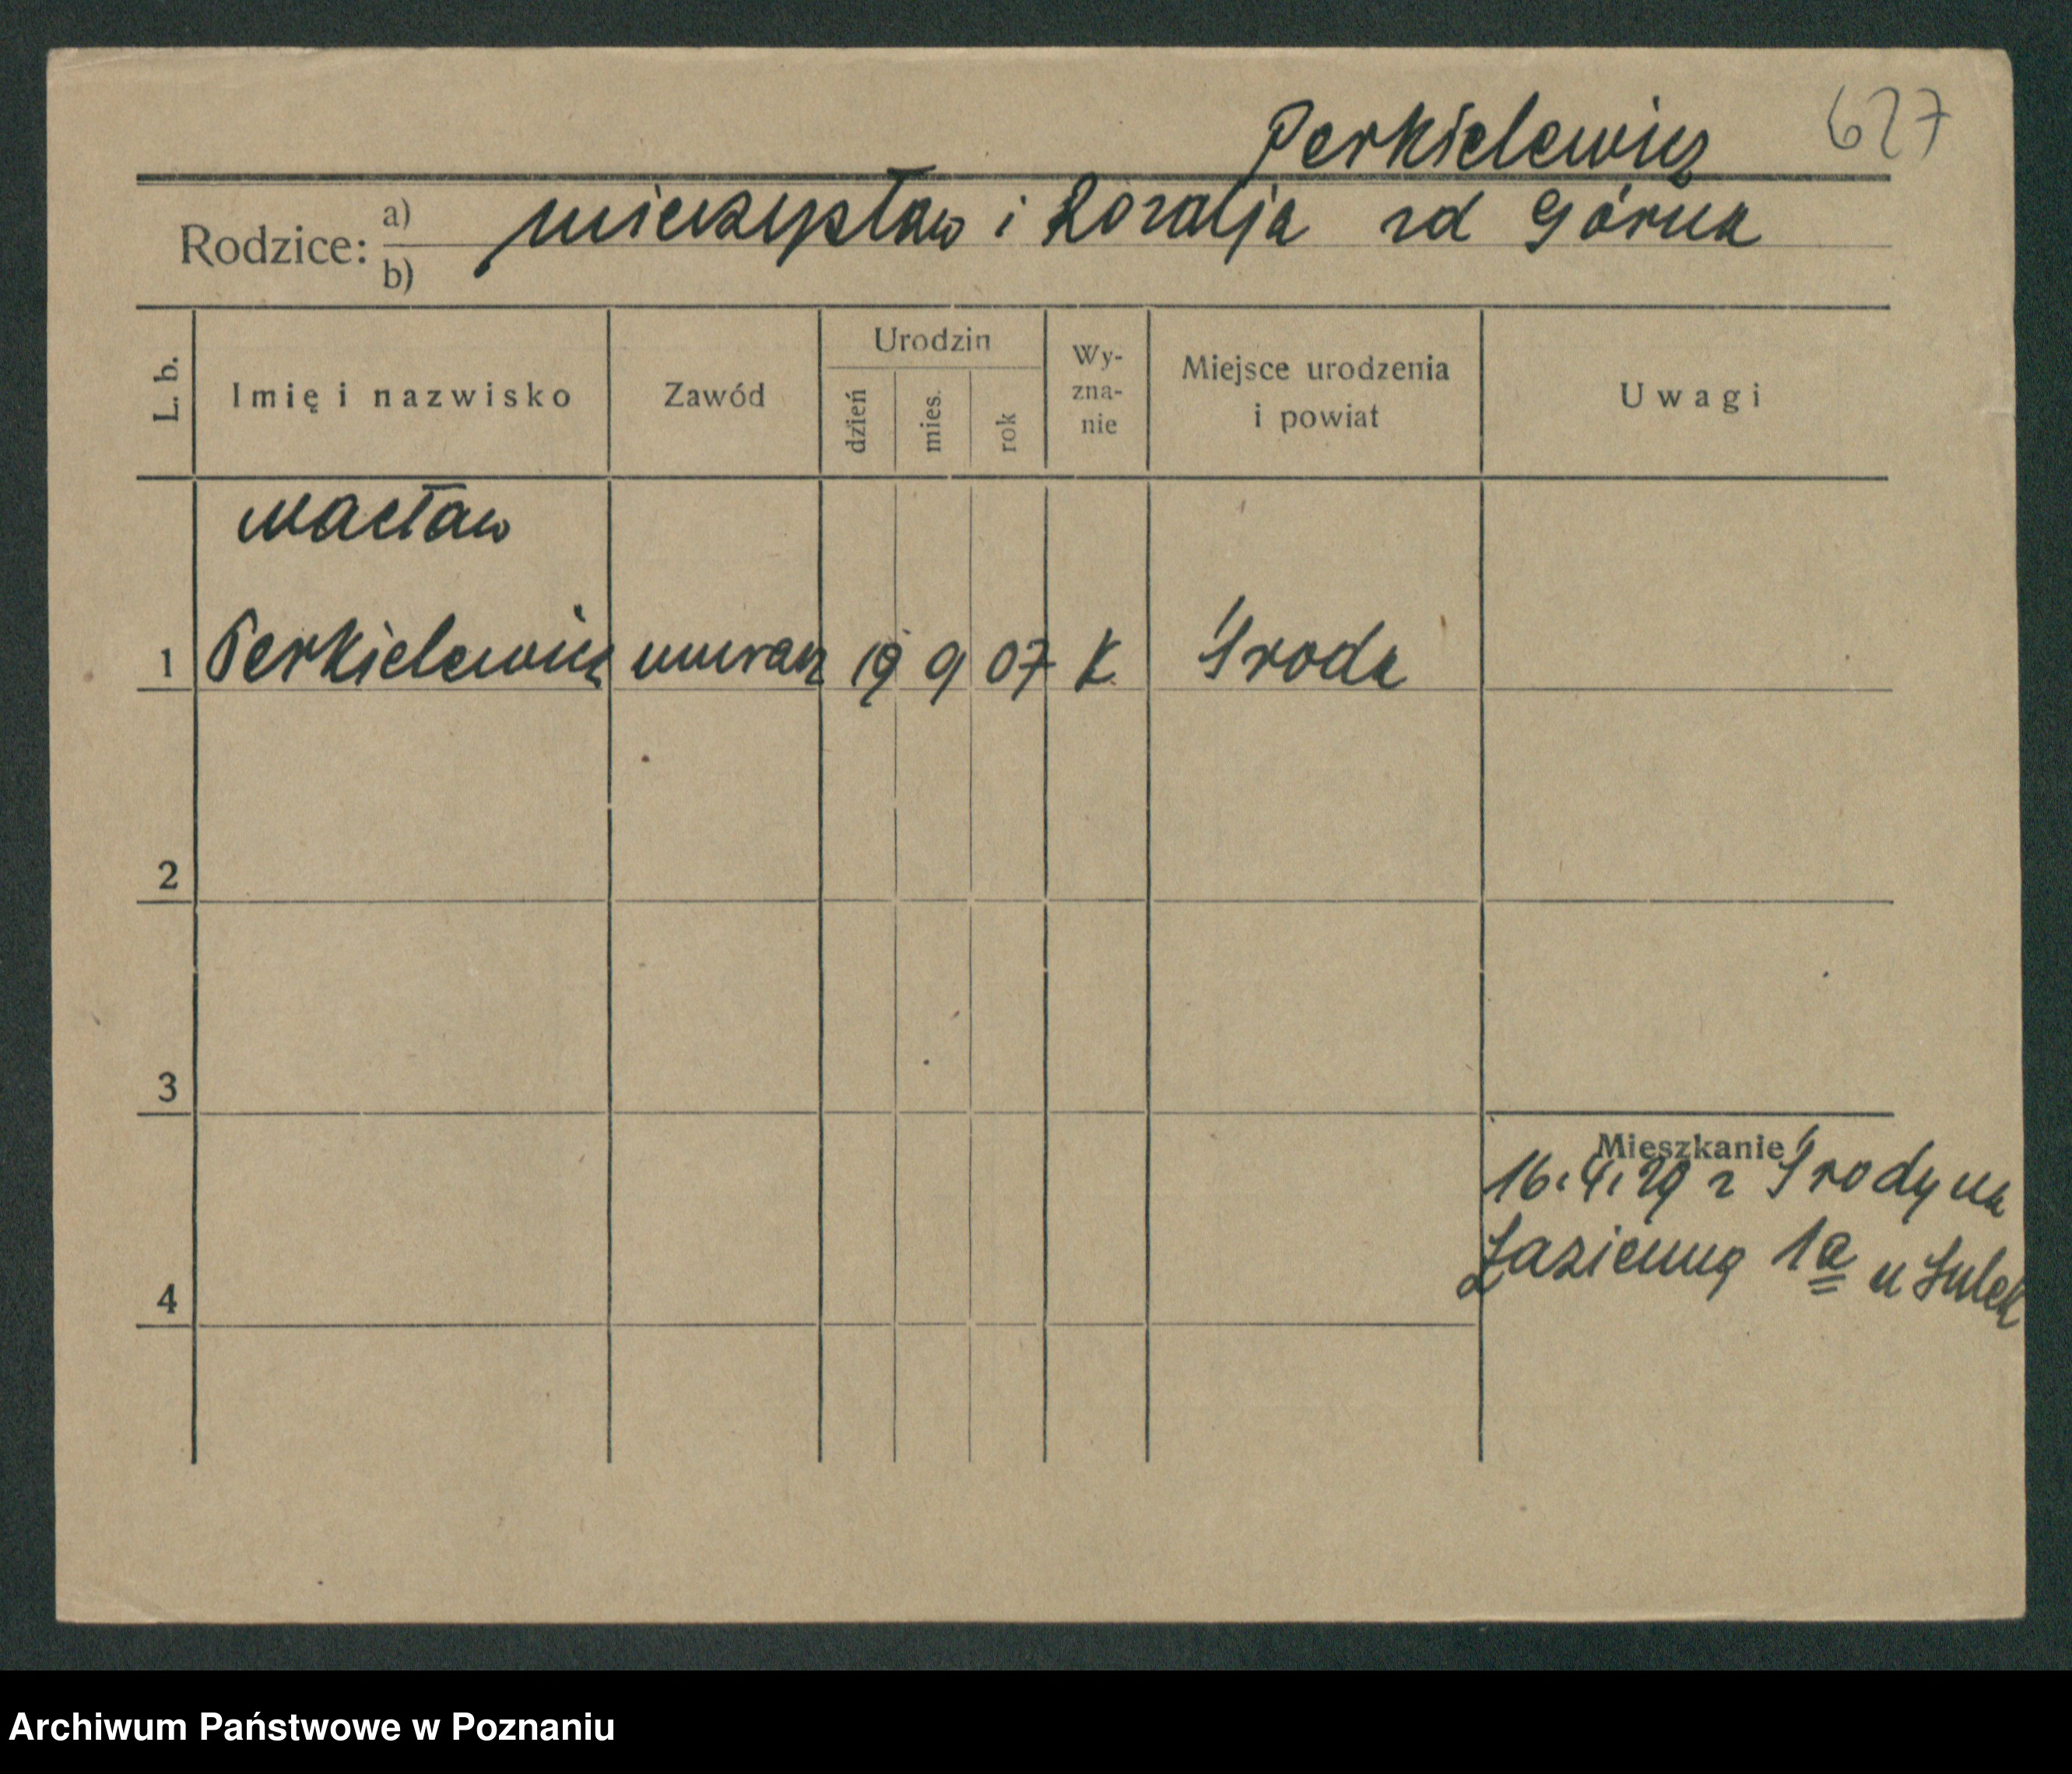 Perkielewicz 627
Rodzice: a) Mieczysław i Rozalja zd Górna
b)
L. b. Imię i nazwisko Zawód Urodzin dzień mies. rok Wy-zna-nie Miejsce urodzenia i powiat Uwagi
Wacław
1 Perkielewicz murarz 19 9 07 k. Środa
2
3
Mieszkanie
16.4.29 z Środy na
Łazienną 1a u
4
Archiwum Państwowe w Poznaniu